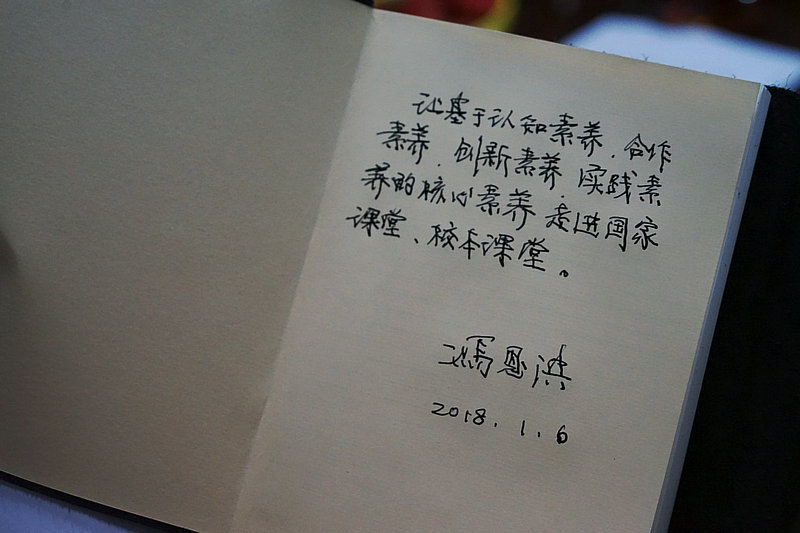 让基于认知素养、合作
素养、创新素养、实践素
养的核心素养走进国家
课堂、校本课堂。
冯恩洪
2018.1.6